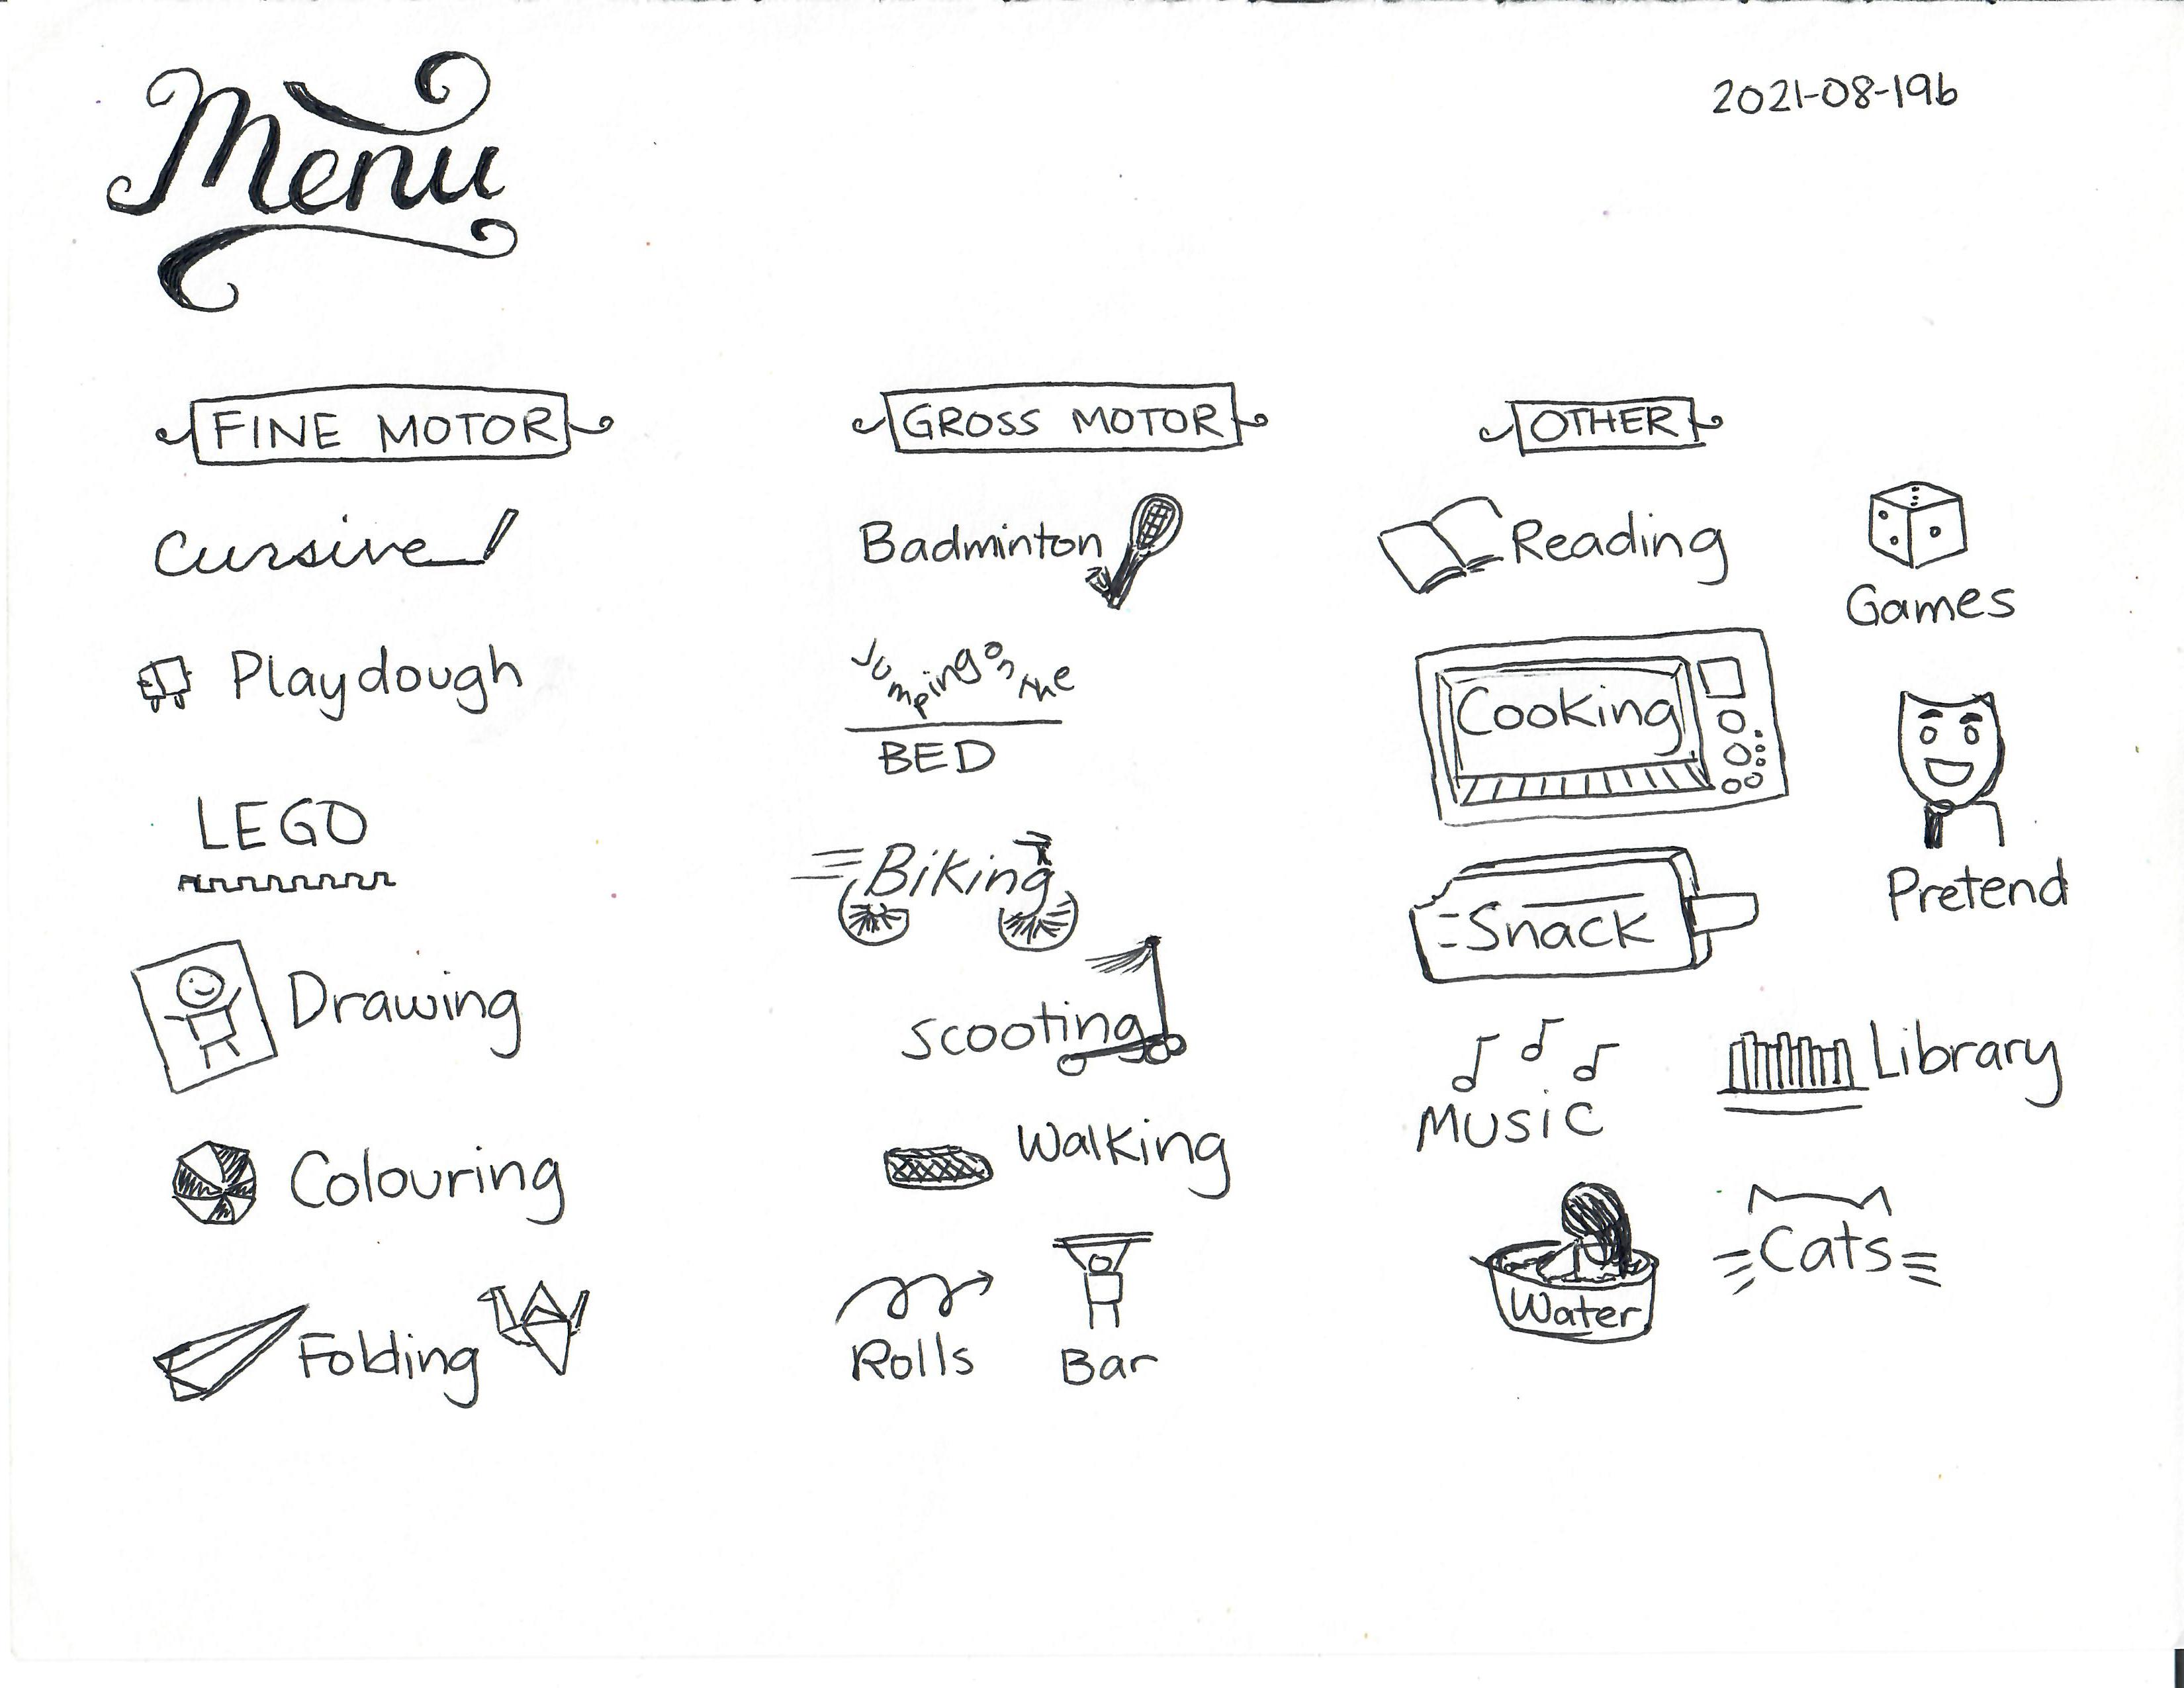 Menu
2021-08-19b
FINE MOTOR
Cursive
Playdough
LEGO
Drawing
Colouring
Folding
GROSS MOTOR
Badminton
Jumping on the
BED
Biking
Scooting
Walking
Rolls
Bar
OTHER
Reading
Games
Cooking
Pretend
Snack
Music
Library
Water
Cats